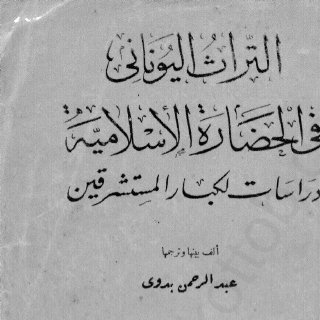 التراثُ اليُونانى
فى الحَضَارَة الإسْلاميَّة
دراسَات لكبَار المستشرقين
ألف بينها وترجمها
عبد الرحمن بدوى